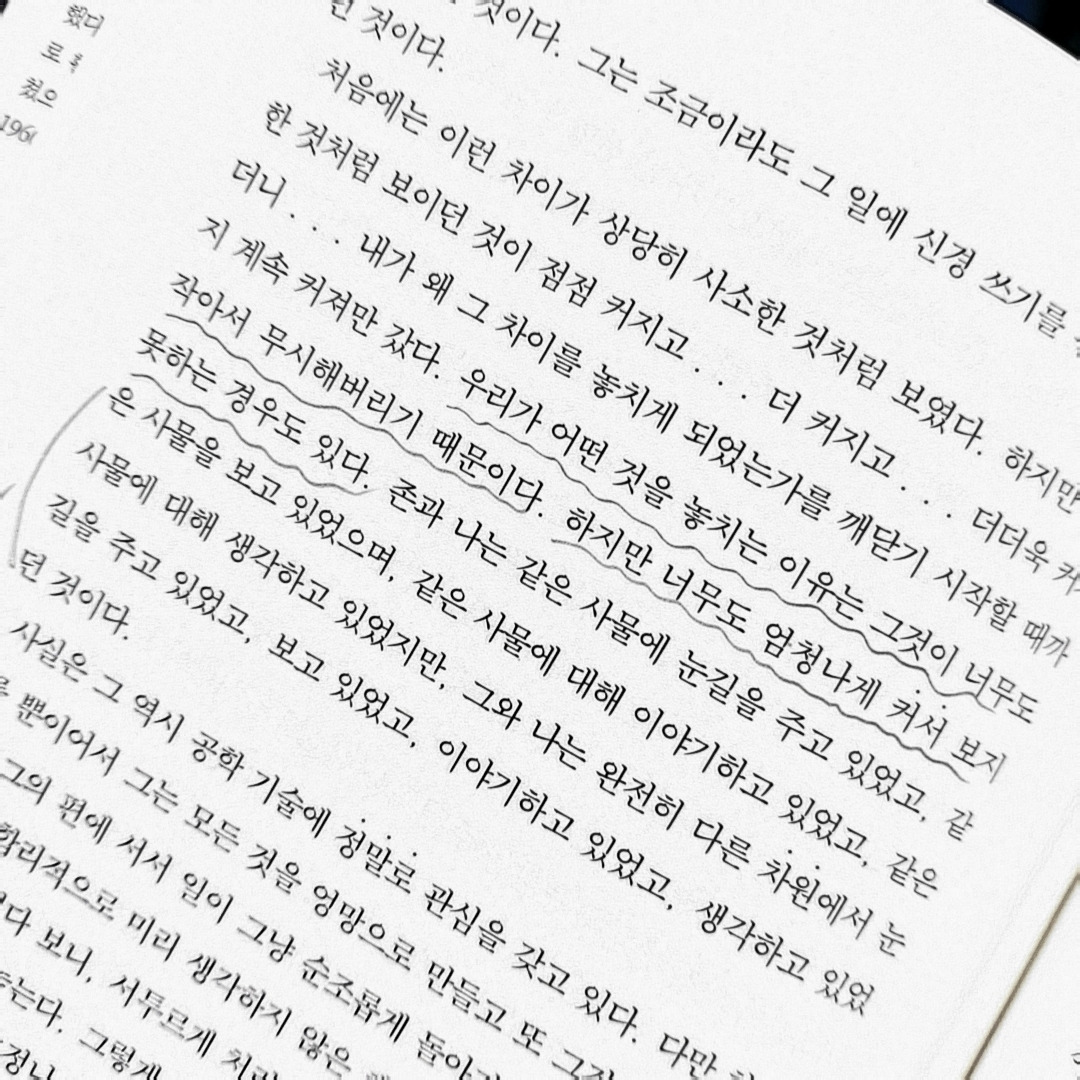 했디
로
쳤으
196
것이다. 그는 조금이라도 그 일에 신경 쓰기를
것이다.
처음에는 이런 차이가 상당히 사소한 것처럼 보였다. 하지만
한 것처럼 보이던 것이 점점 커지고... 더 커지고... 더더욱
더니... 내가 왜 그 차이를 놓치게 되었는가를 깨닫기 시작할 때까
지 계속 커져만 갔다. 우리가 어떤 것을 놓치는 이유는 그것이 너무도
작아서 무시해버리기 때문이다. 하지만 너무도 엄청나게 커서 보지
못하는 경우도 있다. 존과 나는 같은 사물에 눈길을 주고 있었고, 같
은 사물을 보고 있었으며, 같은 사물에 대해 이야기하고 있었고, 같은
사물에 대해 생각하고 있었지만, 그와 나는 완전히 다른 차원에서 눈
길을 주고 있었고, 보고 있었고, 이야기하고 있었고, 생각하고 있었
던 것이다.
사실은 그 역시 공학 기술에 정말로 관심을 갖고 있다. 다만
뿐이어서 그는 모든 것을 엉망으로 만들고 또
그의 편에 서서 일이 그냥 순조롭게
합리적으로 미리 생각하지 않은
보니, 서투르게
그렇게